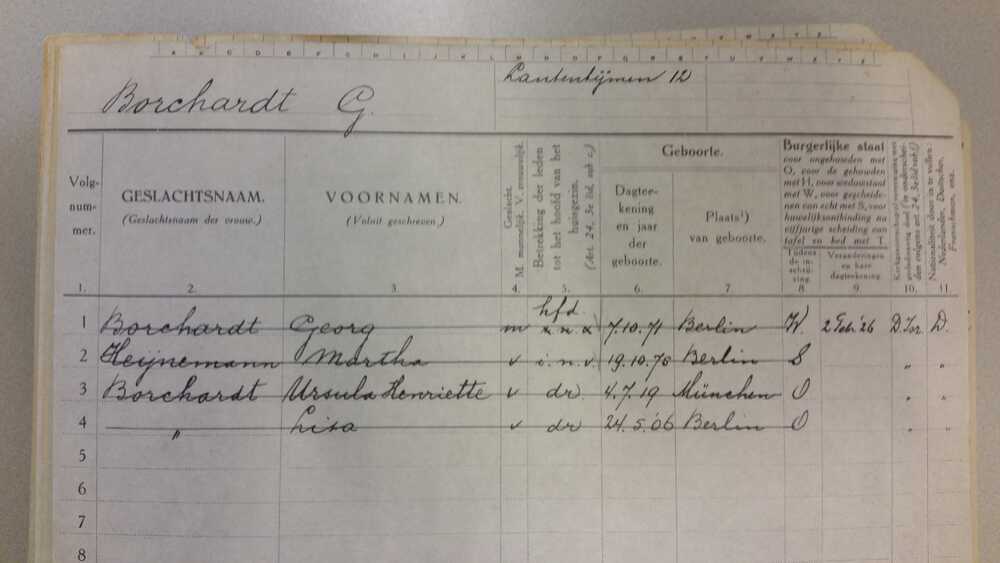 Borchardt G.
Lantentijmen 12
Volg-
num-
mer.
GESLACHTSNAAM.
(Geslachtsnaam der vrouw.)
VOORNAMEN.
(Voluit geschreven)
Geslacht.
M. mannelijk. V. vrouwelijk.
Betrekking der leden
tot het hoofd van het
huisgezin.
(Art. 24, 3e lid, sub c.)
Geboorte.
Dagtee-
kening
en jaar
der
geboorte.
Plaats¹)
van geboorte.
Burgerlijke staat
voor ongehuwden met
O, voor de gehuwden
met H, voor weduwstaat
met W, voor gescheide-
nen van echt met S, voor
huwelijksontbinding na
vijfjarige scheiding van
tafel en bed met T.
Tijdens
de in-
schrij-
ving.
Veranderingen
en haar
dagteekening.
Nationaliteit door in te vullen:
Nederlander, Duitscher,
Franschman, enz.
1. 2. 3. 4. 5. 6. 7. 8. 9. 10. 11.
hfd.
1 Borchardt Georg m 7.10.71 Berlin W. 2 Feb. '26 D. Isr. D.
2 Heijnemann Martha v i.n.v. 19.10.76 Berlin S " "
3 Borchardt Ursula Henriette v dr. 4.7.19 München O " "
4 " Lisa v dr 24.5.06 Berlin O " "
5
6
7
8